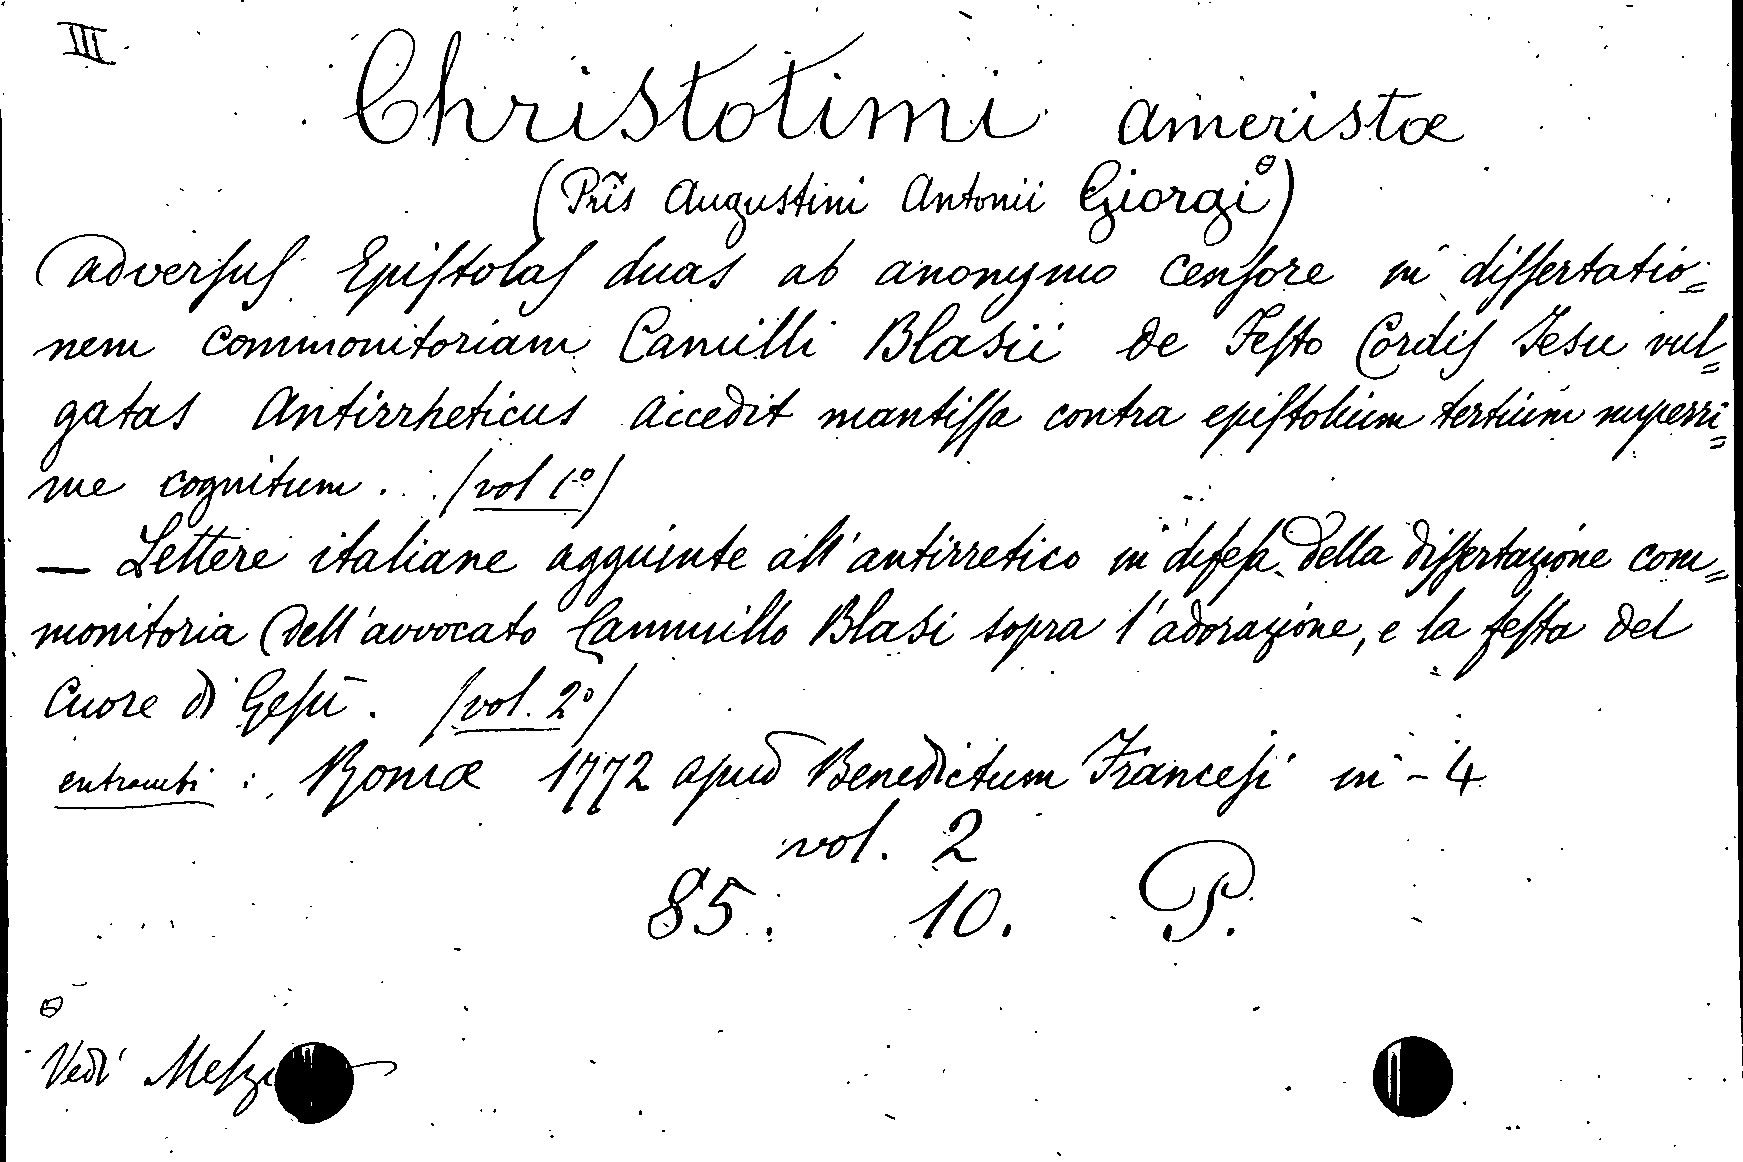 III
Christotimi ameristæ
(Pr̃is Augustini Antonii Giorgi ⊖)
adversus Epistolas duas ab anonymo censore in dissertatio=
nem commonitoriam Camilli Blasii de Festo Cordis Iesu vul=
gatas Antirrheticus accedit mantissa contra epistolium tertium nuperri=
me cognitum. (vol 1º)
— Lettere italiane aggiunte all'antirretico in difesa della dissertazione com=
monitoria dell'avvocato Cammillo Blasi sopra l'adorazione, e la festa del
Cuore di Gesù. (vol. 2º)
entrambi : Romæ 1772 apud Benedictum Francesi in-4
vol. 2
85. 10. P.
⊖
Vedi